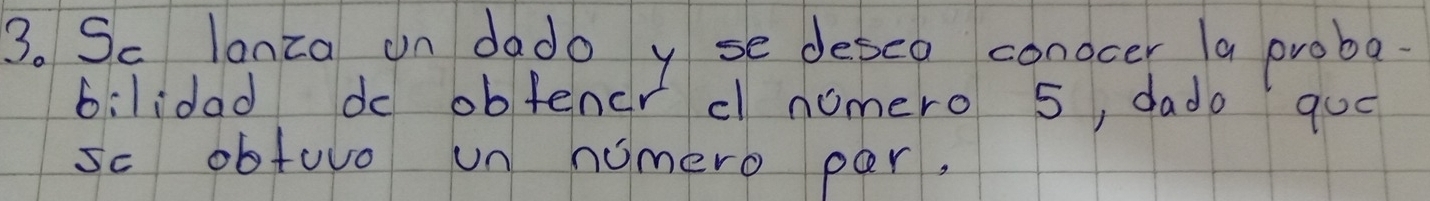 3. Se lanza un dado y se desea conocer la proba-
bilidad de obtener el número 5, dado que
se obtuvo un número par.